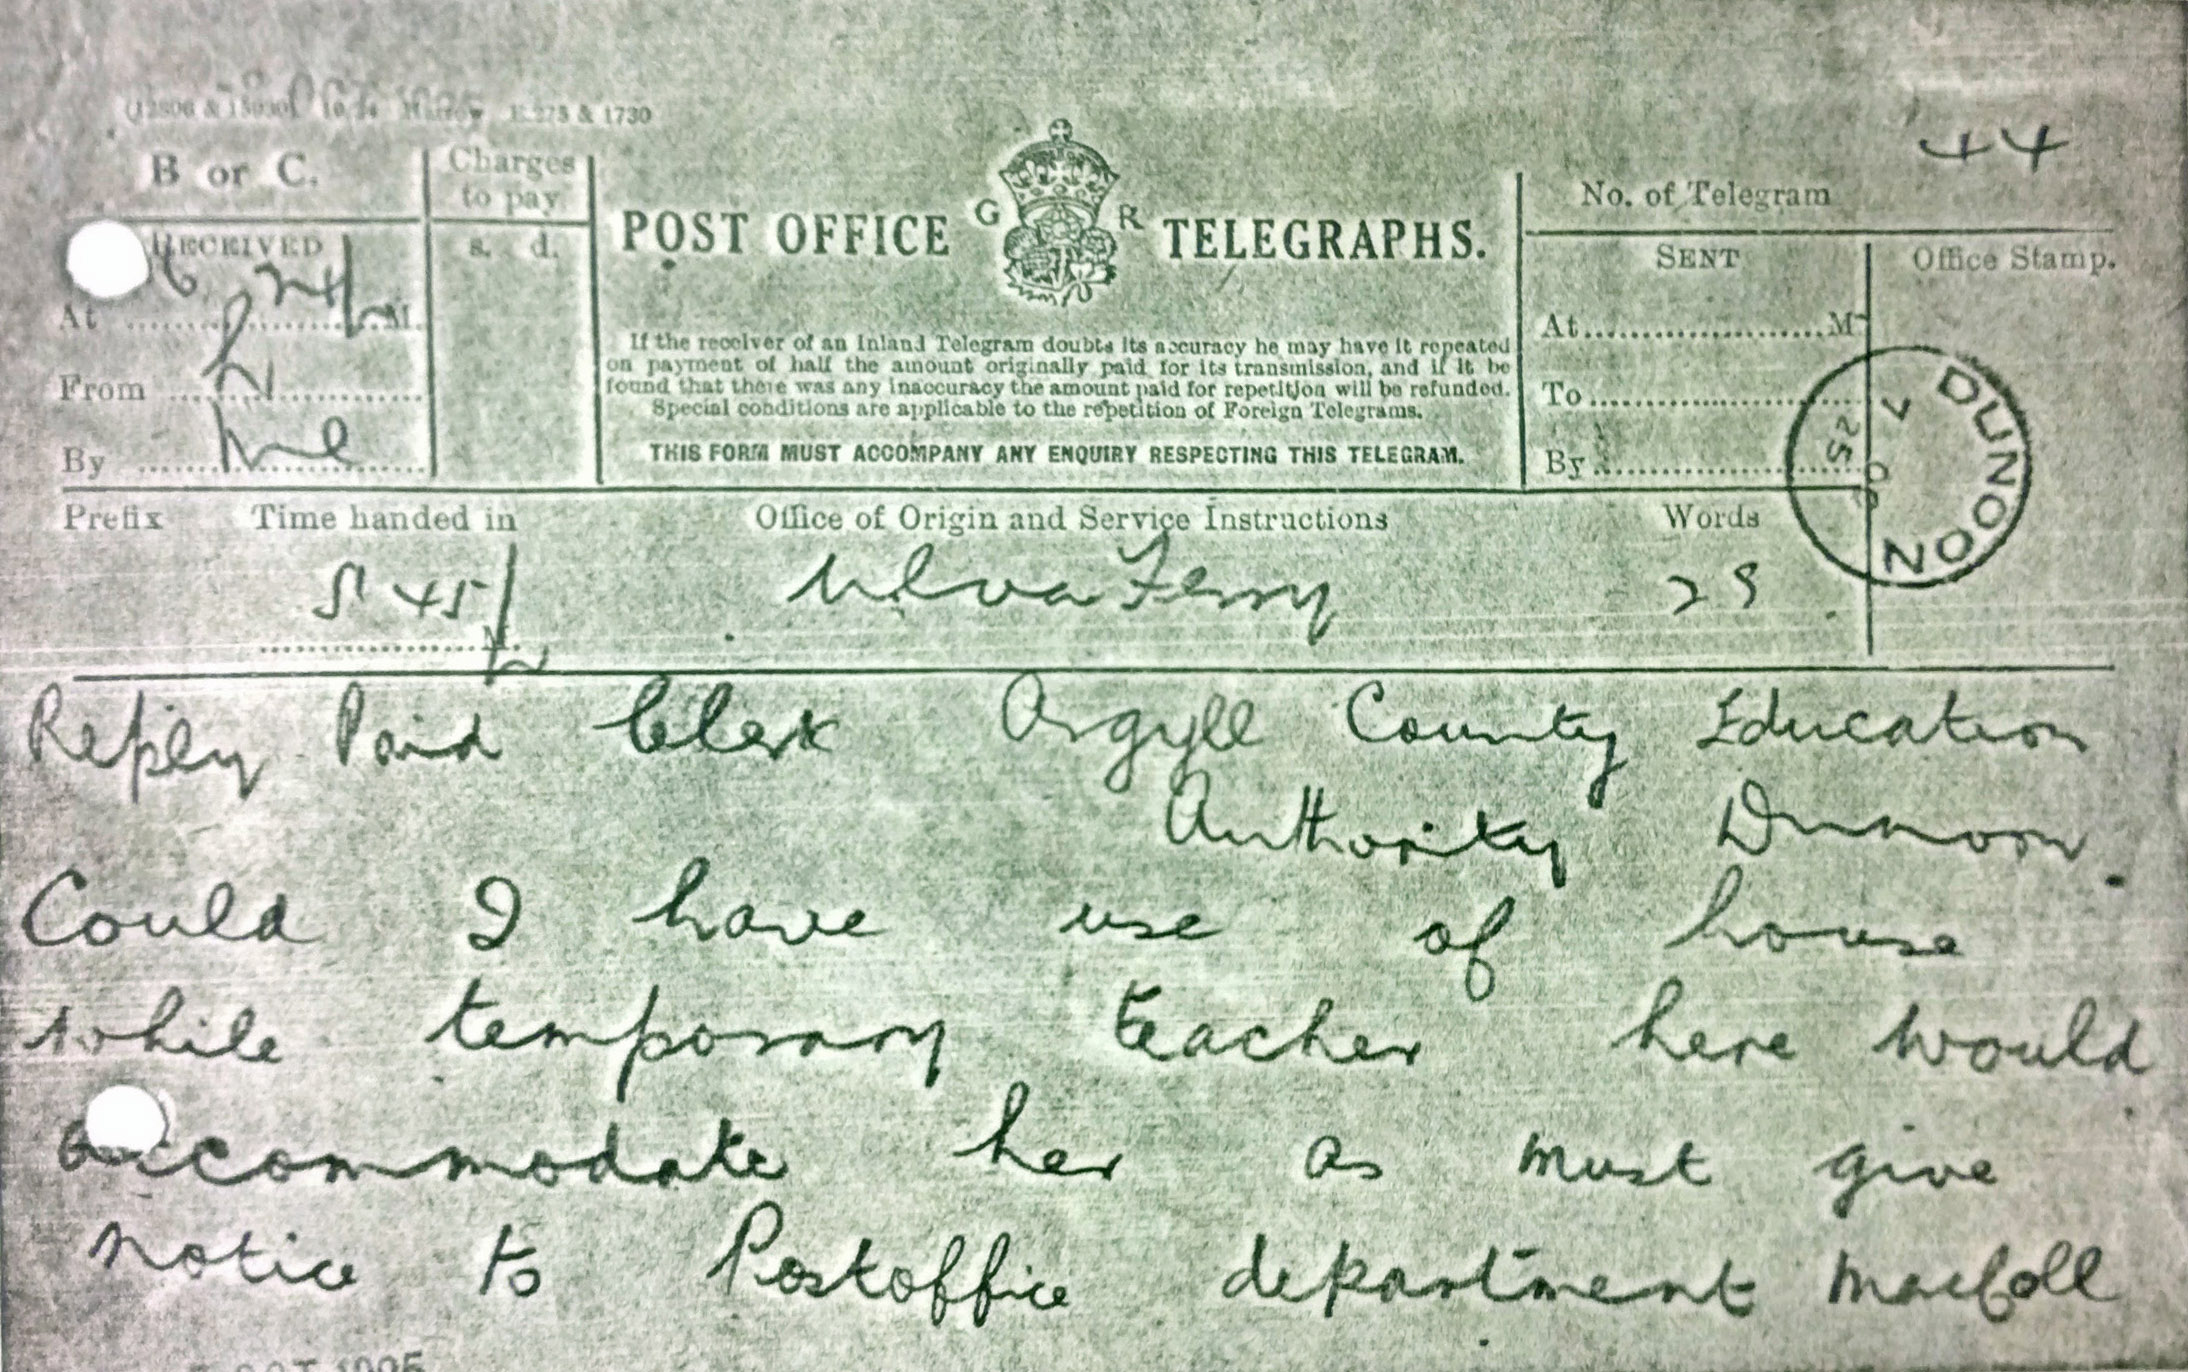 & 1730
B or C.
Charges
to pay
RECEIVED
s. d.
At M
From
By
POST OFFICE G R TELEGRAPHS.
If the receiver of an Inland Telegram doubts its accuracy he may have it repeated
on payment of half the amount originally paid for its transmission, and if it be
found that there was any inaccuracy the amount paid for repetition will be refunded.
Special conditions are applicable to the repetition of Foreign Telegrams.
THIS FORM MUST ACCOMPANY ANY ENQUIRY RESPECTING THIS TELEGRAM.
44
No. of Telegram
SENT
Office Stamp.
At M
To
By
DUNOON
7 OC 25
Prefix
Time handed in
Office of Origin and Service Instructions
Words
5 45 M
Ulva Ferry
29
Reply Paid Clerk Argyll County Education
Authority Dunoon.
Could I have use of house
while temporary teacher here would
accommodate her as must give
notice to Postoffice department MacColl
OCT 1925